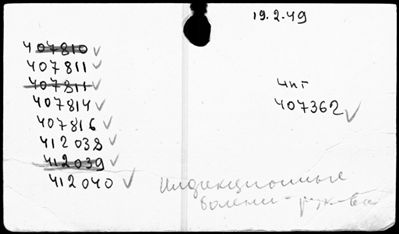 407810
407811
407811
407814
407816
412038
412039
412040
19.2.49
чиг
407362
Инфекционные
болезни - рук-ва